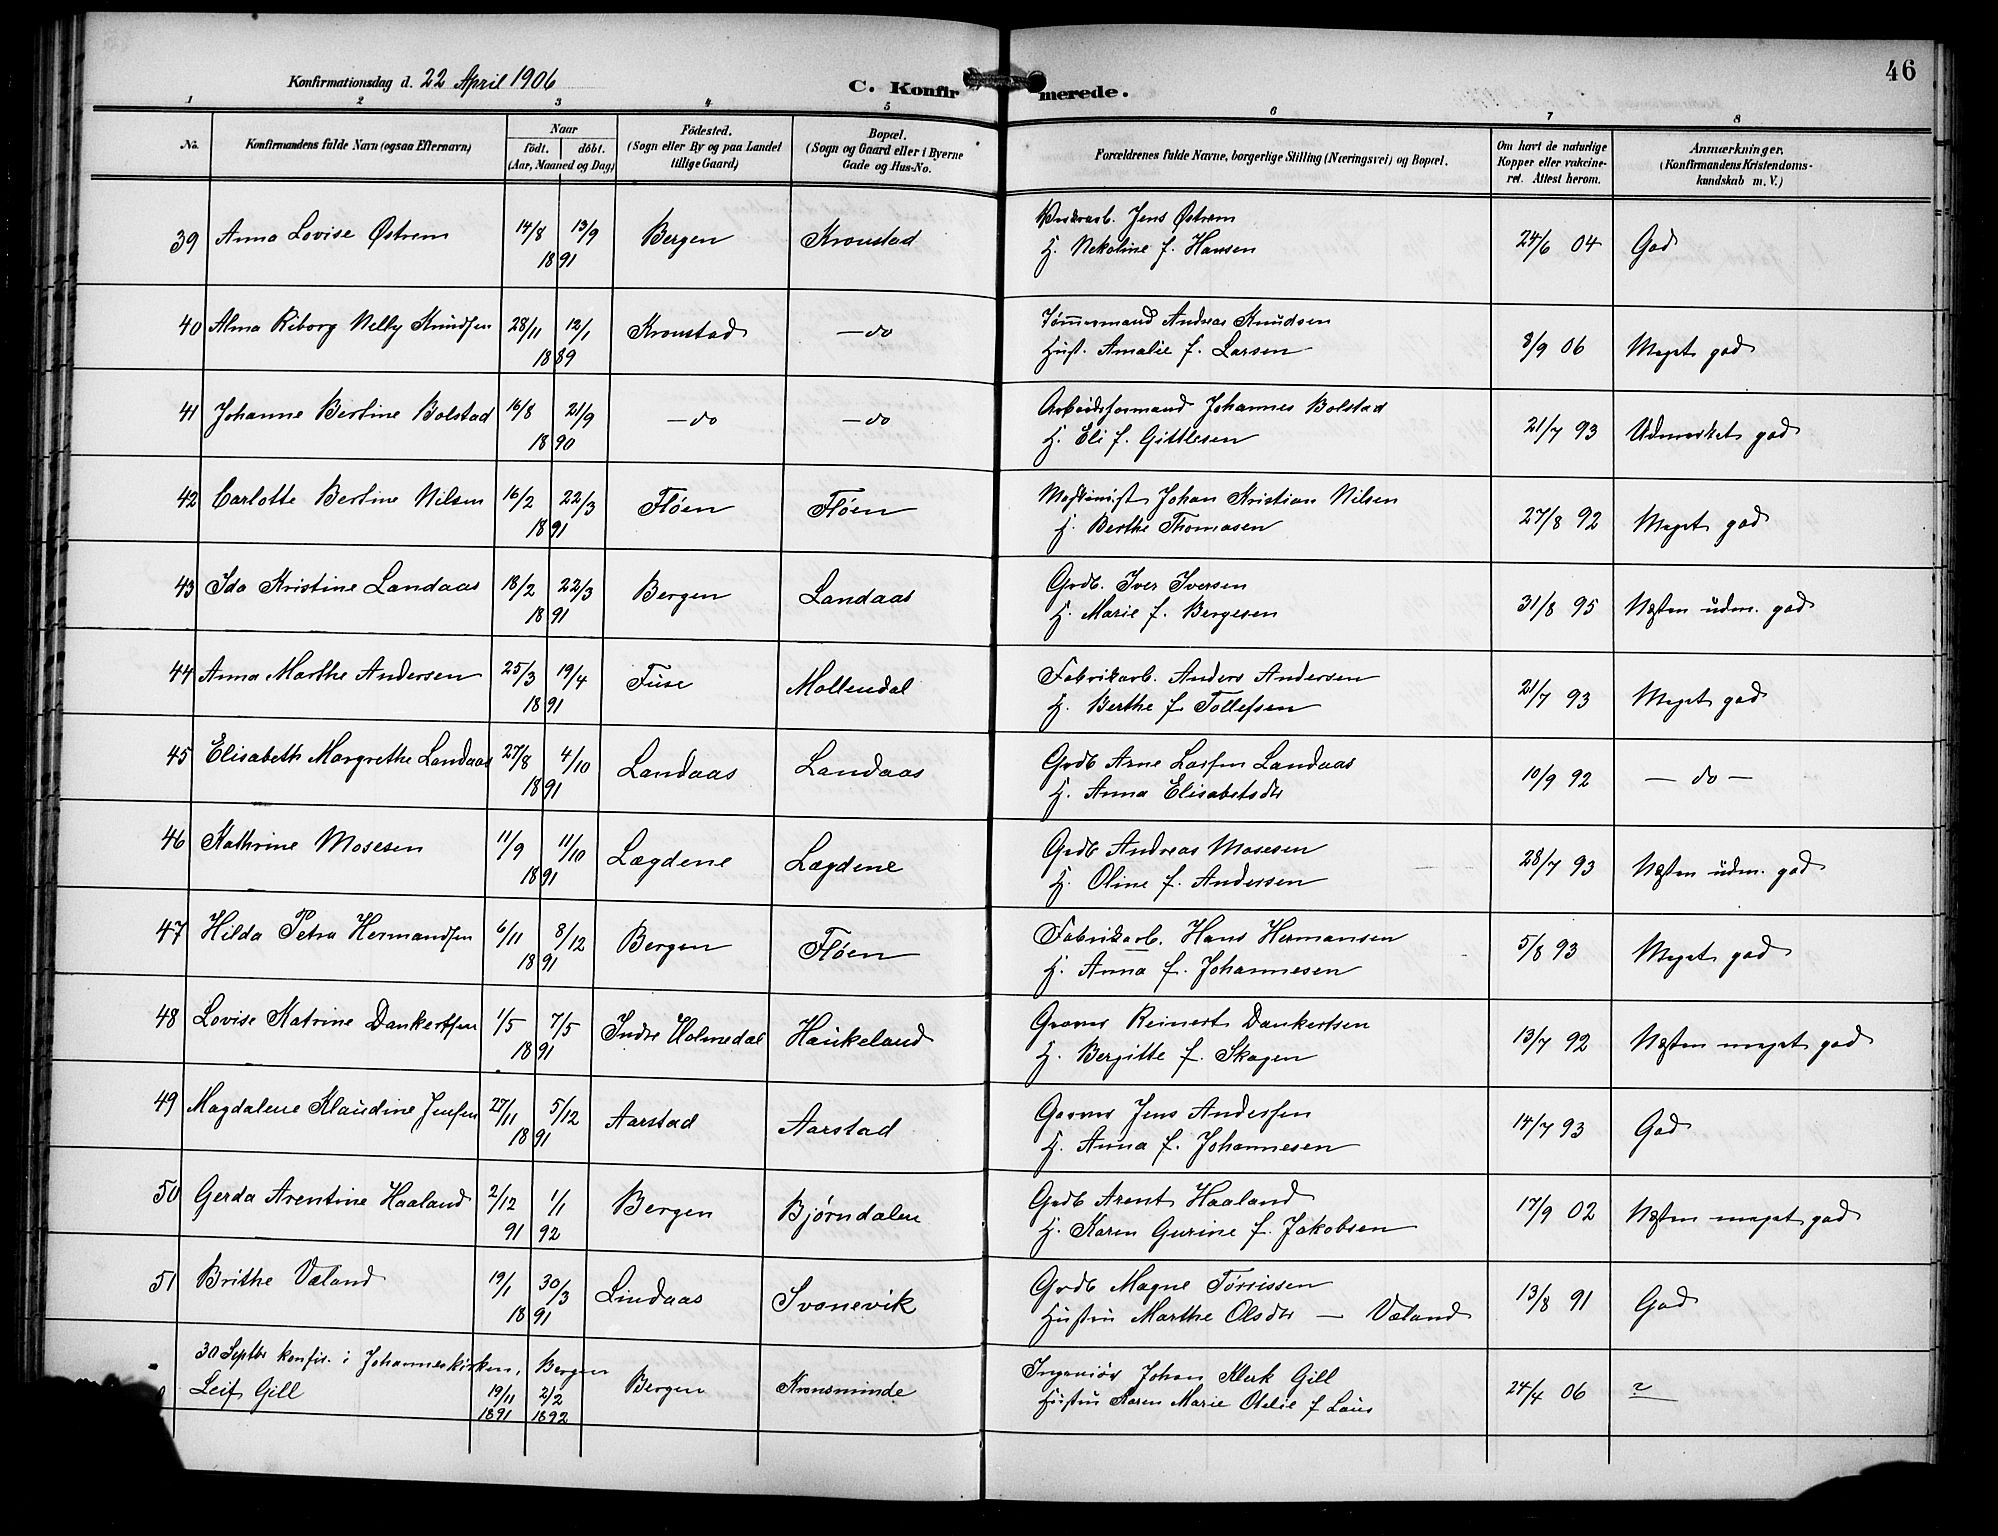 46
Konfirmationsdag d. 22 April 1906
C. Konfirmerede.
1 2 3 4 5 6 7 8
No. Konfirmandens fulde Navn (ogsaa Efternavn) Naar født. døbt. (Aar, Maaned og Dag) Fødested. (Sogn eller By og paa Landet tillige Gaard) Bopæl. (Sogn og Gaard eller i Byerne Gade og Hus-No. Forældrenes fulde Navne, borgerlige Stilling (Næringsvei) og Bopæl. Om havt de naturlige Kopper eller vakcineret. Attest herom. Anmærkninger. (Konfirmandens Kristendomskundskab m. V.)
39 Anna Lovise Østrem 14/8 13/9 1891 Bergen Kronstad Jens Østrem
H. Nekoline f. Hansen 24/6 04 God
40 Alma Riborg Nelly Knudsen 28/11 12/1 1889 Kronstad —do Tømmermand Andreas Knudsen
Hust. Amalie f. Larsen 8/9 06 Meget god
41 Johanne Bertine Bolstad 16/8 21/9 1890 —do —do Arbeidsformand Johannes Bolstad
H. Eli f. Gittlesen 21/7 93 Udmerket god
42 Carlotte Bertine Nilsen 16/2 22/3 1891 Fløen Fløen Maskinist Johan Kristian Nilsen
H. Berthe Thomasen 27/8 92 Meget god
43 Ida Kristine Landaas 18/2 22/3 1891 Bergen Landaas Grdb. Iver Iversen
H. Marie f. Bergesen 31/8 95 Næsten udm. god
44 Anna Marthe Andersen 25/3 19/4 1891 Fuse Mollendal Fabrikarb. Anders Andersen
H. Berthe f. Tollefsen 21/7 93 Meget god
45 Elisabeth Margrethe Landaas 27/8 4/10 1891 Landaas Landaas Grdb Arne Larsen Landaas
H. Anna Elisabetsdtr 10/9 92 — do —
46 Kathrine Mosesen 11/9 11/10 1891 Lægdene Lægdene Grdb Andreas Mosesen
H. Oline f. Andersen 28/7 93 Næsten udm. god
47 Hilda Petra Hermandsen 6/11 8/12 1891 Bergen Fløen Fabrikarb. Hans Hermansen
H. Anna f. Johannesen 5/8 93 Meget god
48 Lovise Katrine Dankertsen 1/5 7/5 1891 Indre Holmedal Haukeland Garver Reinert Dankertsen
H. Bergitte f. Skagen 13/7 92 Næsten meget god
49 Magdalene Klaudine Jensen 27/11 5/12 1891 Aarstad Aarstad Garver Jens Andersen
H. Anna f. Johannesen 14/7 93 God
50 Gerda Arentine Haaland 2/12 91 1/1 92 Bergen Bjørndalen Grdb Arent Haaland
H. Karen Gurine f. Jakobsen 17/9 02 Næsten meget god
51 Brithe Væland 19/1 30/3 1891 Lindaas Svanevik Grdb Magne Tørrissen
Hustru Marthe Olsdtr — Væland 13/8 91 God
30 Septbr konfir. i Johanneskirken, Bergen
Leif Gill 19/11 1891 2/2 1892 Bergen Kronsminde Ingeniør Johan Klerk Gill
Hustru Karen Marie Otelie f Laus 24/4 06 ?